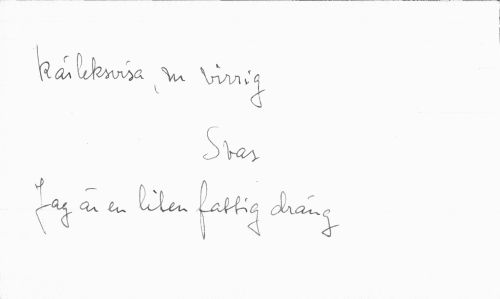 Kärleksvisa, m virrig
Svar
Jag är en liten fattig dräng